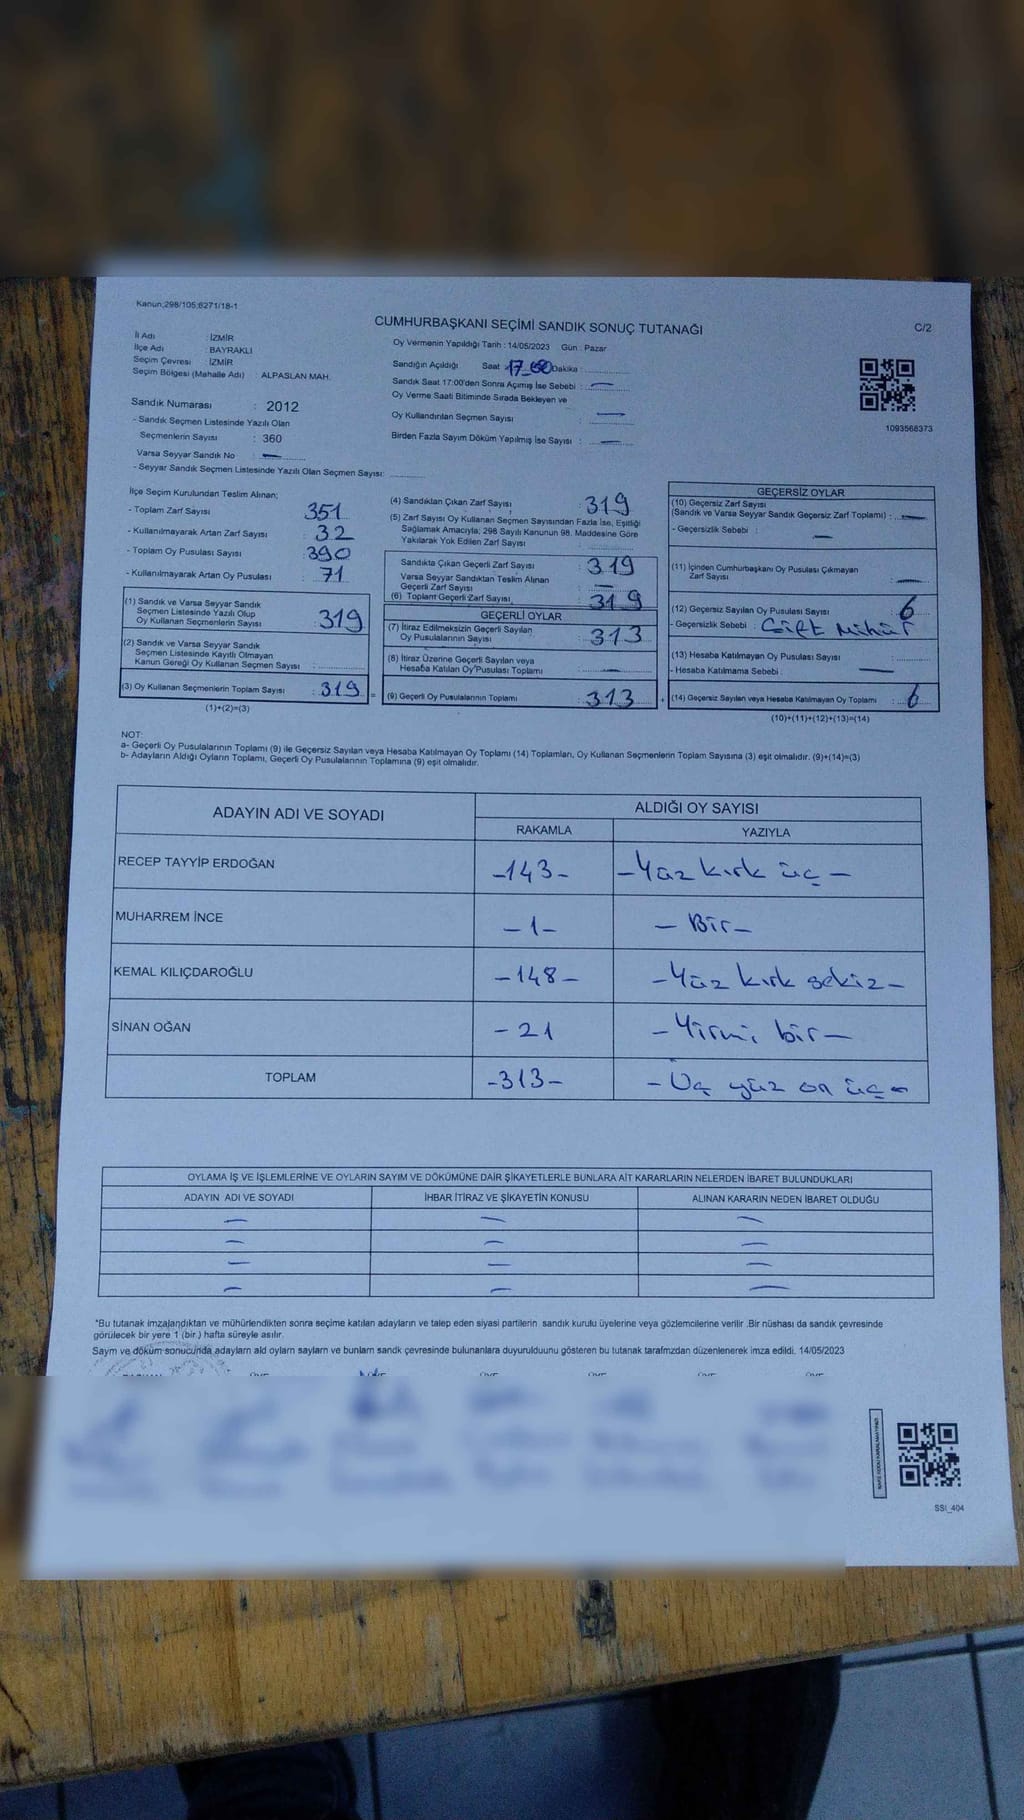 Kanun;298/105;6271/18-1
CUMHURBAŞKANI SEÇİMİ SANDIK SONUÇ TUTANAĞI
C/2
İl Adı : İZMİR
İlçe Adı : BAYRAKLI
Seçim Çevresi : İZMİR
Seçim Bölgesi (Mahalle Adı) : ALPASLAN MAH.
Sandık Numarası : 2012
- Sandık Seçmen Listesinde Yazılı Olan
Seçmenlerin Sayısı : 360
Varsa Seyyar Sandık No : —
- Seyyar Sandık Seçmen Listesinde Yazılı Olan Seçmen Sayısı:
Oy Vermenin Yapıldığı Tarih : 14/05/2023 Gün : Pazar
Sandığın Açıldığı Saat : 17 Dakika :
Sandık Saat 17:00'den Sonra Açımış İse Sebebi : —
Oy Verme Saati Bitiminde Sırada Bekleyen ve
Oy Kullandırılan Seçmen Sayısı : —
Birden Fazla Sayım Döküm Yapılmış İse Sayısı : —
1093568373
İlçe Seçim Kurulundan Teslim Alınan;
- Toplam Zarf Sayısı : 351
- Kullanılmayarak Artan Zarf Sayısı : 32
- Toplam Oy Pusulası Sayısı : 390
- Kullanılmayarak Artan Oy Pusulası : 71
(1) Sandık ve Varsa Seyyar Sandık
Seçmen Listesinde Yazılı Olup
Oy Kullanan Seçmenlerin Sayısı : 319
(2) Sandık ve Varsa Seyyar Sandık
Seçmen Listesinde Kayıtlı Olmayan
Kanun Gereği Oy Kullanan Seçmen Sayısı :
(3) Oy Kullanan Seçmenlerin Toplam Sayısı : 319
(1)+(2)=(3)
(4) Sandıktan Çıkan Zarf Sayısı : 319
(5) Zarf Sayısı Oy Kullanan Seçmen Sayısından Fazla İse, Eşitliği
Sağlamak Amacıyla; 298 Sayılı Kanunun 98. Maddesine Göre
Yakılarak Yok Edilen Zarf Sayısı :
Sandıkta Çıkan Geçerli Zarf Sayısı : 319
Varsa Seyyar Sandıktan Teslim Alınan
Geçerli Zarf Sayısı : —
(6) Toplam Geçerli Zarf Sayısı : 319
GEÇERLİ OYLAR
(7) İtiraz Edilmeksizin Geçerli Sayılan
Oy Pusulalarının Sayısı : 313
(8) İtiraz Üzerine Geçerli Sayılan veya
Hesaba Katılan Oy Pusulası Toplamı : —
= (9) Geçerli Oy Pusulalarının Toplamı : 313
GEÇERSİZ OYLAR
(10) Geçersiz Zarf Sayısı
(Sandık ve Varsa Seyyar Sandık Geçersiz Zarf Toplamı) : —
- Geçersizlik Sebebi : —
(11) İçinden Cumhurbaşkanı Oy Pusulası Çıkmayan
Zarf Sayısı : —
(12) Geçersiz Sayılan Oy Pusulası Sayısı : 6
- Geçersizlik Sebebi : Çift Mühür
(13) Hesaba Katılmayan Oy Pusulası Sayısı :
- Hesaba Katılmama Sebebi : —
+ (14) Geçersiz Sayılan veya Hesaba Katılmayan Oy Toplamı : 6
(10)+(11)+(12)+(13)=(14)
NOT:
a- Geçerli Oy Pusulalarının Toplamı (9) ile Geçersiz Sayılan veya Hesaba Katılmayan Oy Toplamı (14) Toplamları, Oy Kullanan Seçmenlerin Toplam Sayısına (3) eşit olmalıdır. (9)+(14)=(3)
b- Adayların Aldığı Oyların Toplamı, Geçerli Oy Pusulalarının Toplamına (9) eşit olmalıdır.
ADAYIN ADI VE SOYADI ALDIĞI OY SAYISI
RAKAMLA YAZIYLA
RECEP TAYYİP ERDOĞAN -143- - Yüz kırk üç -
MUHARREM İNCE -1- - Bir -
KEMAL KILIÇDAROĞLU -148- - Yüz kırk sekiz -
SİNAN OĞAN -21 - Yirmi bir -
TOPLAM -313- - Üç yüz on üç -
OYLAMA İŞ VE İŞLEMLERİNE VE OYLARIN SAYIM VE DÖKÜMÜNE DAİR ŞİKAYETLERLE BUNLARA AİT KARARLARIN NELERDEN İBARET BULUNDUKLARI
ADAYIN ADI VE SOYADI İHBAR İTİRAZ VE ŞİKAYETİN KONUSU ALINAN KARARIN NEDEN İBARET OLDUĞU
— — —
— — —
— — —
— — —
*Bu tutanak imzalandıktan ve mühürlendikten sonra seçime katılan adayların ve talep eden siyasi partilerin sandık kurulu üyelerine veya gözlemcilerine verilir .Bir nüshası da sandık çevresinde
görülecek bir yere 1 (bir.) hafta süreyle asılır.
Saym ve döküm sonucunda adaylarn ald oylarn saylarn ve bunlarn sandk çevresinde bulunanlara duyurulduunu gösteren bu tutanak tarafmzdan düzenlenerek imza edildi. 14/05/2023
SSI_404